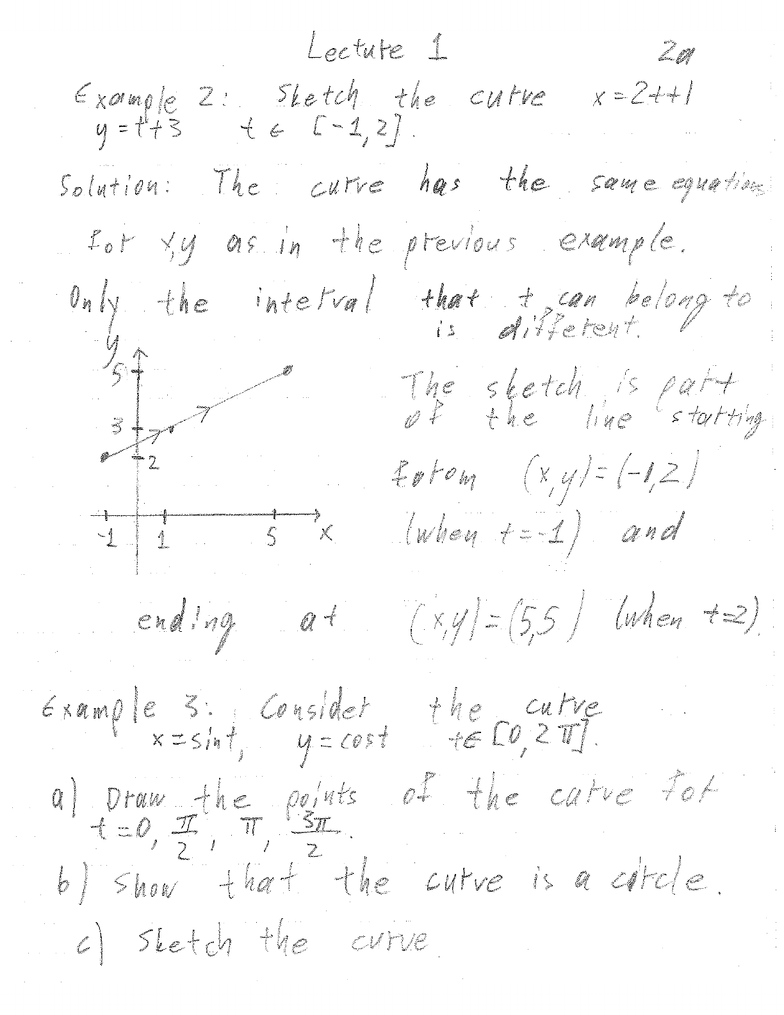 Lecture 1 2a
Example 2: Sketch the curve x=2t+1
y=t+3 t ∈ [-1,2].
Solution: The curve has the same equations
for x,y as in the previous example.
Only the interval that t can belong to
is different.
y
5
3
2
-1 1 5 x
The sketch is part
of the line starting
from (x,y)=(-1,2)
(when t=-1) and
ending at (x,y)=(5,5) (when t=2).
Example 3: Consider the curve
x=sint, y=cost t∈[0,2π].
a) Draw the points of the curve for
t=0, π/2, π, 3π/2.
b) Show that the curve is a circle.
c) Sketch the curve